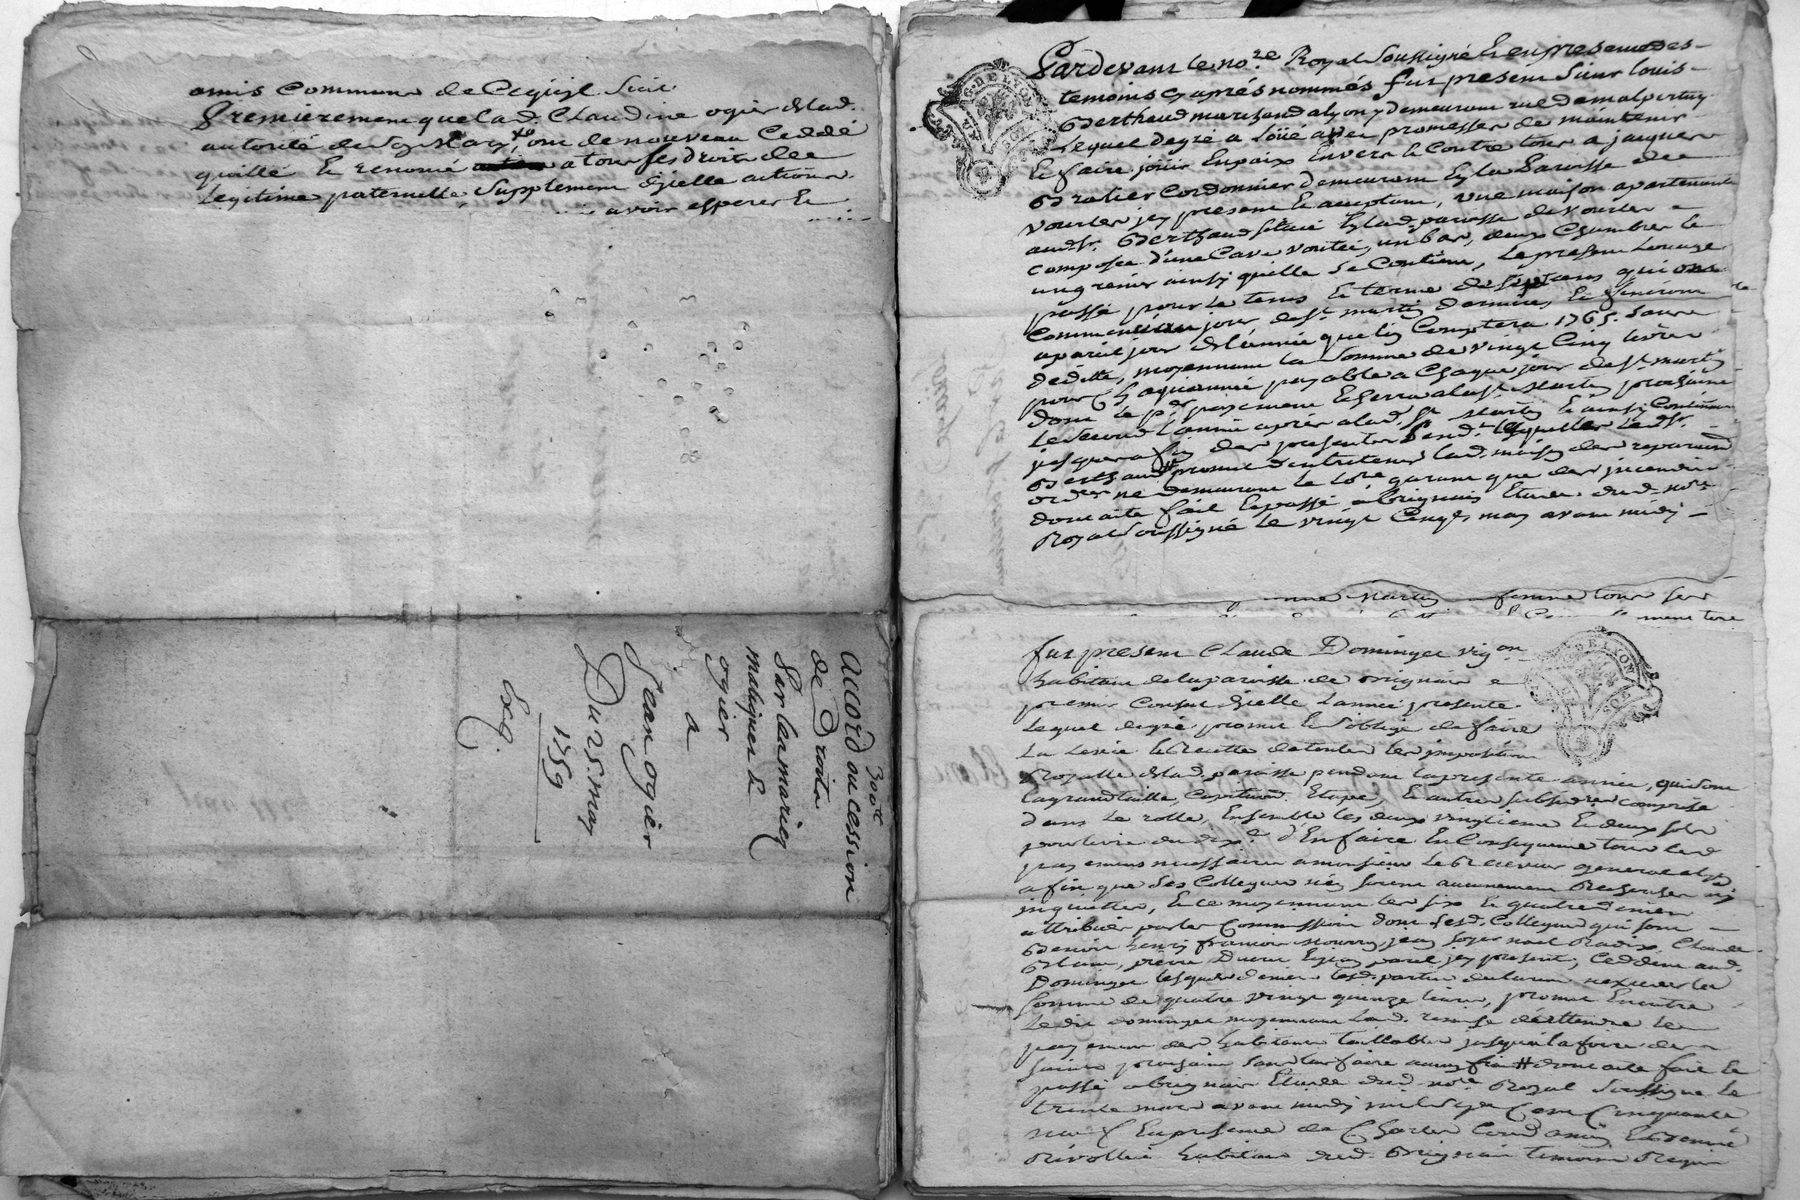 amis communs de Ce qui Suit
Premierement que lad. Claudine ogier de lad.
autorité dud. Mary, ont de nouveau Ceddé
quitté Et renoncé a tous ses droits de
Legitime paternelle, Supplement d'jcelle actions
avoir esperer Et
300#
accord ou cession
de Droits
Par les mariez
malignier &
ogier
a
Jean ogier
Du 25. may
1759
Exp.
Pardevant le no.re Royal Soussigné & en presence des
temoins cy aprés nommés fut present Sieur louis
Berthaud marchand a lyon y demeurant rue de malpertuy
Lequel degré a Loüé avec promesses de maintenir
Et faire joüir En paix Envers Et Contre tous a jacques
Bratier Cordonnier demeurant En la Paroisse de
vourles jcy present Et acceptant, une maison apartenante
aud. Sr. Berthaud Scituée En lad. paroisse de vourles
composée d'une Cave voutée, un bas, deux Chambres Et
un grenier ainsy qu'elle Se Contient, Le present Louage
passé pour le tems Et terme de Sept ans qui ont
Commencé au jour de St. martin dernier, Et finiront
a pareil jour de l'année que l'on Comptera 1765. Sans
deditte, moyennant la Somme de vingt Cinq livres
pour Chaque année payable a Chaque jour de St. martin
dont le pr. payement Echerra a la St. Martin prochaine
Le Second L'année aprés a lad. St. Martin Et ainsy Continuer
jusques a fin des presentes Pend.t Lesquelles Led. Sr.
Berthaud promet d'entretenir lad. maison des reparations
ord.res ne demeurant le Loc.re garant que des jncendies
dont acte fait Et passé a Brignais Etude dud. no.re
Royal Soussigné Le vingt Cinq may avant midy
Martin femme tous
fut present Claude Dominget vigon
habitant de la paroisse de Brignais
premier Consul d'jcelle L'année presente
Lequel degré promet Et S'oblige de faire
La Levée Et Recette de toutes les jmpositions
Royalle de lad. paroisse pendant la presente année, qui sont
la grand taille, Capitaon. Etape, Et autres Subsides compris
dans Le rolle, Ensemble les deux vingtiemes Et deux Sols
pour livre du dix.e d'En faire En Consequence tous les
payemens necessaires a monsieur Le Receveur general
afin que Ses Collegues n'en Soient aucunement Recherchés ny
jnquietés, Et Ce moyennant les Six Et quatre deniers
attribués par les Commission dont Sesd. Collegues qui Sont
Benoit henry francois Mourry, jean Soyer noel Claude
pierre jcy present, Ceddent aud.
Dominget lesquels deniers
Somme de quatre vingt quinze livres, promet En outre
Ledit Dominget moyennant Lad. remise d'attendre Le
payement des habitans taillables jusqu'a la foire des
saints prochain Sans leur faire aucuns frais # dont acte fait Et
passé a Brignais Etude dud. no.re Royal Soussigné Le
trente mars avant midy mil Sept Cent Cinquante
neuf En presence de Charles Et Benoit
Rivollié habitans dud. Brignais temoins Requis